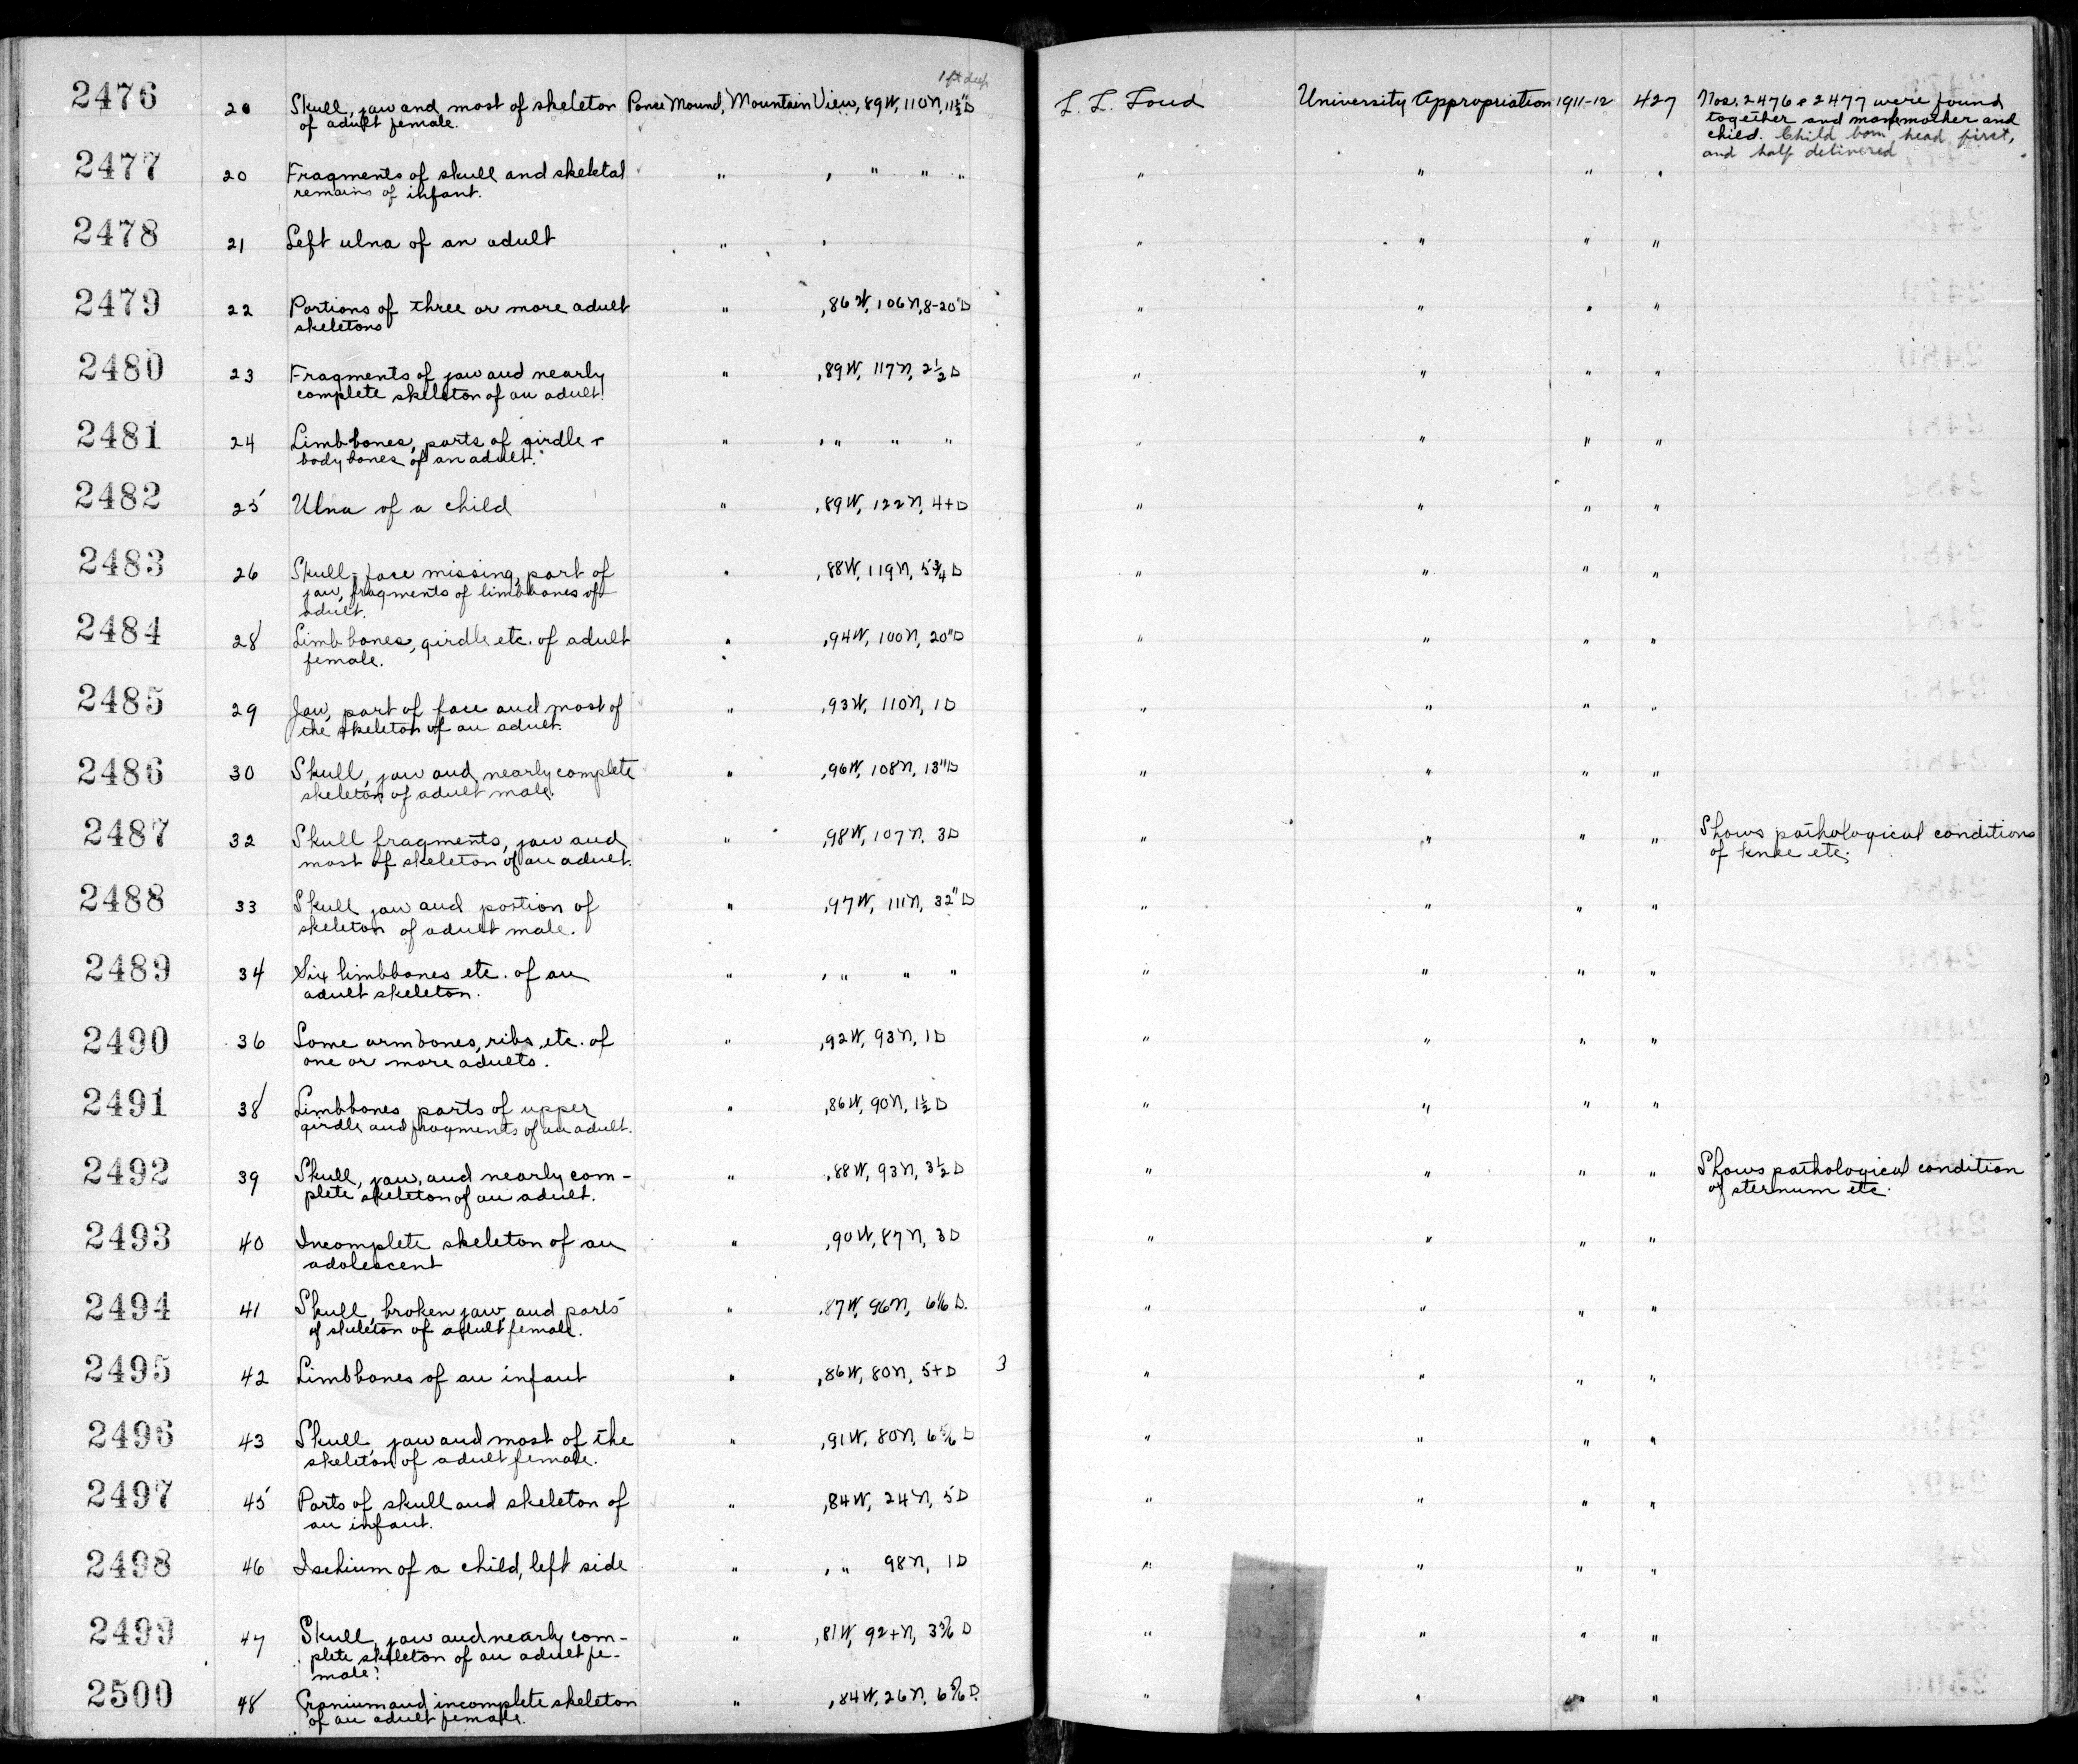 1 ft deep
2476 20 Skull, jaw and most of skeleton Ponce Mound, Mountain View, 89W, 110N, 11½"D L. L. Loud University Appropriation 1911-12 427 Nos. 2476 & 2477 were found
of adult female. together and mother and
child. Child born head first,
and half delivered
2477 20 Fragments of skull and skeletal " , " " " " " " "
remains of infant.
2478 21 Left ulna of an adult " , " " " "
2479 22 Portions of three or more adult " ,86W, 106N, 8-20"D " " " "
skeletons
2480 23 Fragments of jaw and nearly " ,89W, 117N, 2½D " " " "
complete skeleton of an adult.
2481 24 Limbbones, parts of girdle + " , " " " " " " "
body bones of an adult.
2482 25 Ulna of a child " ,89W, 122N, 4+D " " " "
2483 26 Skull, face missing, part of " ,88W, 119N, 5¾D " " " "
jaw, fragments of limbbones of
adult.
2484 28 Limb bones, girdle etc. of adult " ,94W, 100N, 20"D " " " "
female.
2485 29 Jaw, part of face and most of " ,93W, 110N, 1D " " " "
the skeleton of an adult.
2486 30 Skull, jaw and nearly complete " ,96W, 108N, 18"D " " " "
skeleton of adult male.
2487 32 Skull fragments, jaw and " ,98W, 107N, 3D " " " " Shows pathological conditions
most of skeleton of an adult. of knee etc.
2488 33 Skull jaw and portion of " ,97W, 111N, 32"D " " " "
skeleton of adult male.
2489 34 Six limbbones etc. of an " , " " " " " " "
adult skeleton.
2490 36 Some armbones, ribs, etc. of " ,92W, 93N, 1D " " " "
one or more adults.
2491 38 Limbbones, parts of upper " ,86W, 90N, 1½D " " " "
girdle and fragments of an adult.
2492 39 Skull, jaw, and nearly com- " ,88W, 93N, 3½D " " " " Shows pathological condition
plete skeleton of an adult. of sternum etc.
2493 40 Incomplete skeleton of an " ,90W, 87N, 3D " " " "
adolescent
2494 41 Skull, broken jaw, and parts " ,87W, 96N, 6⅙D. " " " "
of skeleton of adult female.
2495 42 Limbbones of an infant " ,86W, 80N, 5+D 3 " " " "
2496 43 Skull, jaw and most of the " ,91W, 80N, 6⅚D " " " "
skeleton of adult female.
2497 45 Parts of skull and skeleton of " ,84W, 24N, 5D " " " "
an infant.
2498 46 Ischium of a child, left side " , " 98N, 1D " " " "
2499 47 Skull, jaw and nearly com- " ,81W, 92+N, D " " " "
plete skeleton of an adult fe-
male?
2500 48 Cranium and incomplete skeleton " ,84W, 26N, 6⅚D. " " " "
of an adult female.